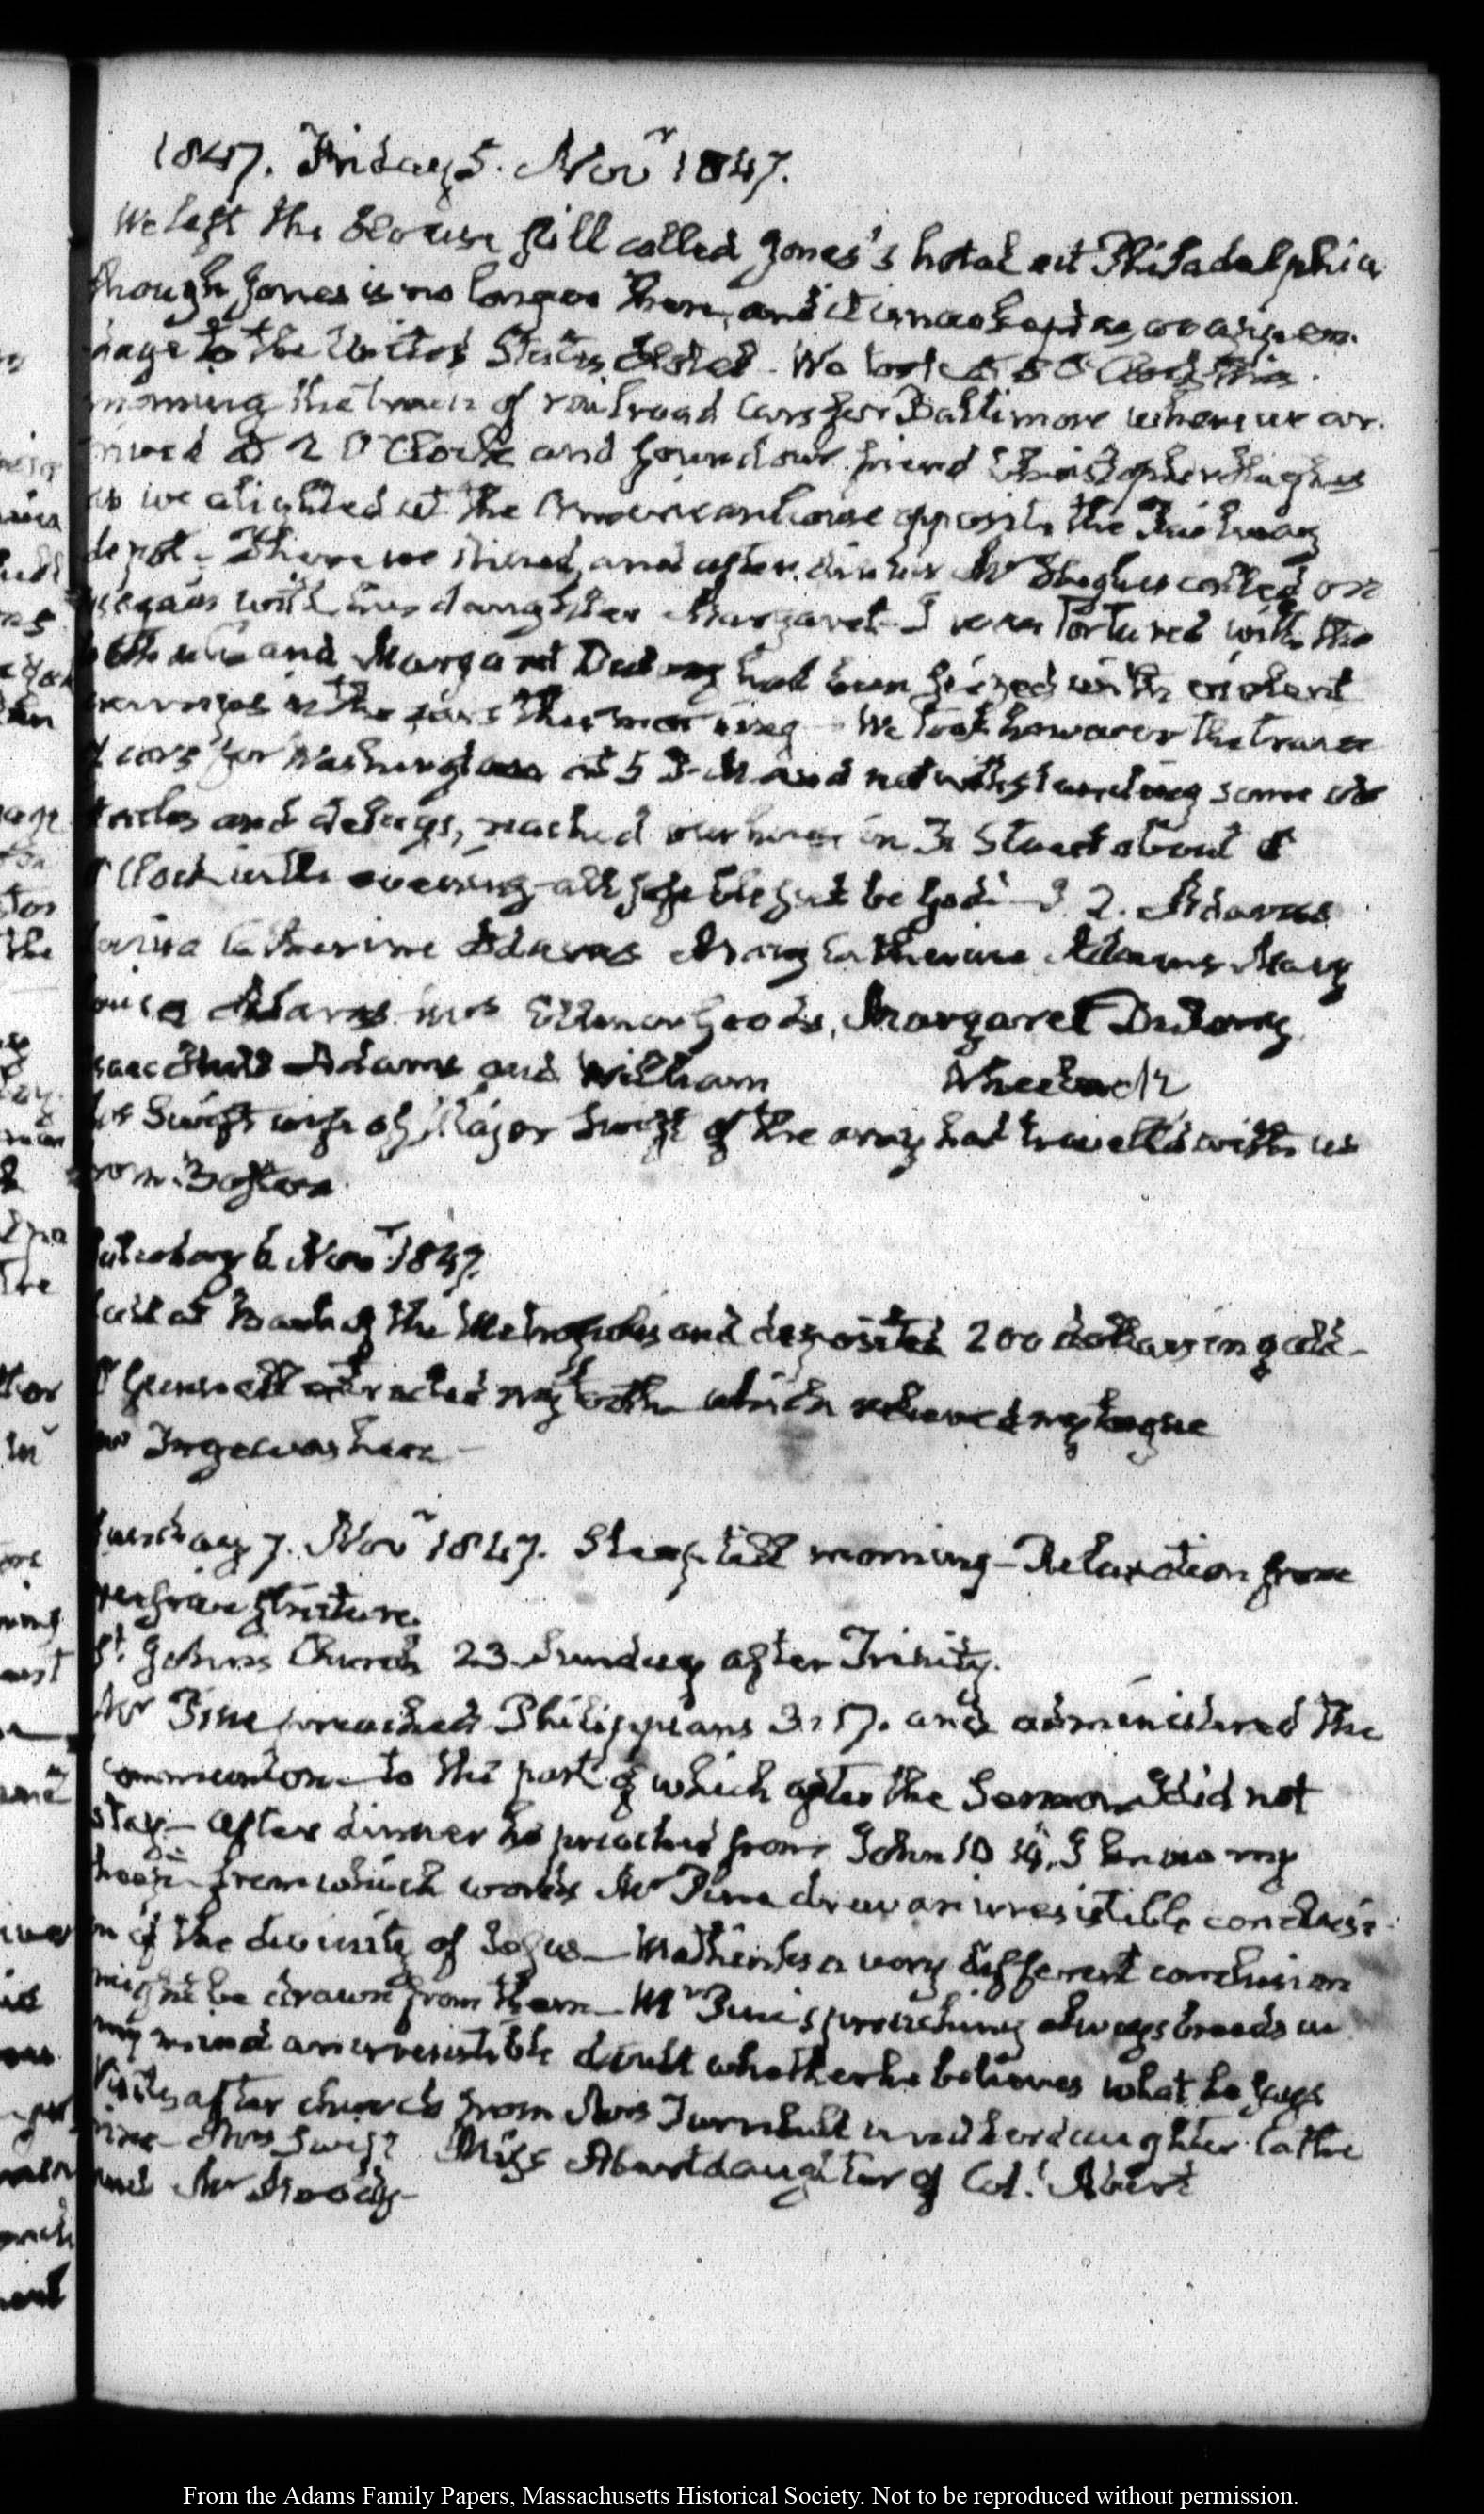 1847. Friday 5. Novr 1847.
We left the House still called Jones's hotel at Philadelphia
though Jones is no longer there, and it is now kept as an appen-
dage to the United States Hotel. We took at 8 O'Clock this
morning the train of railroad Cars for Baltimore where we ar-
rived at 2 O'Clock and found our friend Christopher Hughes
as we alighted at the American house opposite the Railway
depot. There we dined, and after dinner Mr Hughes called on
us again with his daughter Margaret. I was tortured with the
and Margaret Dulany had been seized with violent
in the cars this morning. We took however the train
of cars for Washington at 5 P.M and notwithstanding some ob-
stacles and delays, reached our house in F. Street about 8
O'Clock in the evening, all safe blessed be God. J. Q. Adams
Louisa Catherine Adams Mary Catherine Adams Mary
Louisa Adams Mrs Ellinor Goods, Margaret Dulany
Isaac Hull Adams and William Wheelock
Mrs Swift wife of Major Swift of the army had travelled with us
from Boston
Saturday 6. Novr 1847.
Call at Bank of the Metropolis and deposited 200 dollars in gold.
extracted my tooth which relieved my tongue
was here
Sunday 7. Novr 1847. Sleep till morning – Relaxation from
stricture.
St. John's Church 23. Sunday after Trinity.
Mr Pine preached Philippians 3. 17. and administered the
communion to the part of which after the Sermon I did not
stay – After dinner he preached from John 10 14. I know my
sheep – from which words Mr Pine drew an irresistible conclusi-
on of the divinity of Jesus – Methinks a very different conclusion
might be drawn from them – Mr Pine's preaching always breeds in
my mind an irresistible doubt whether he believes what he says
Visits after church from Mrs Turnbull and her daughter Cathe
rine – Mrs Swift Miss Abert daughter of Col. Abert
and Mr Moody –
From the Adams Family Papers, Massachusetts Historical Society. Not to be reproduced without permission.